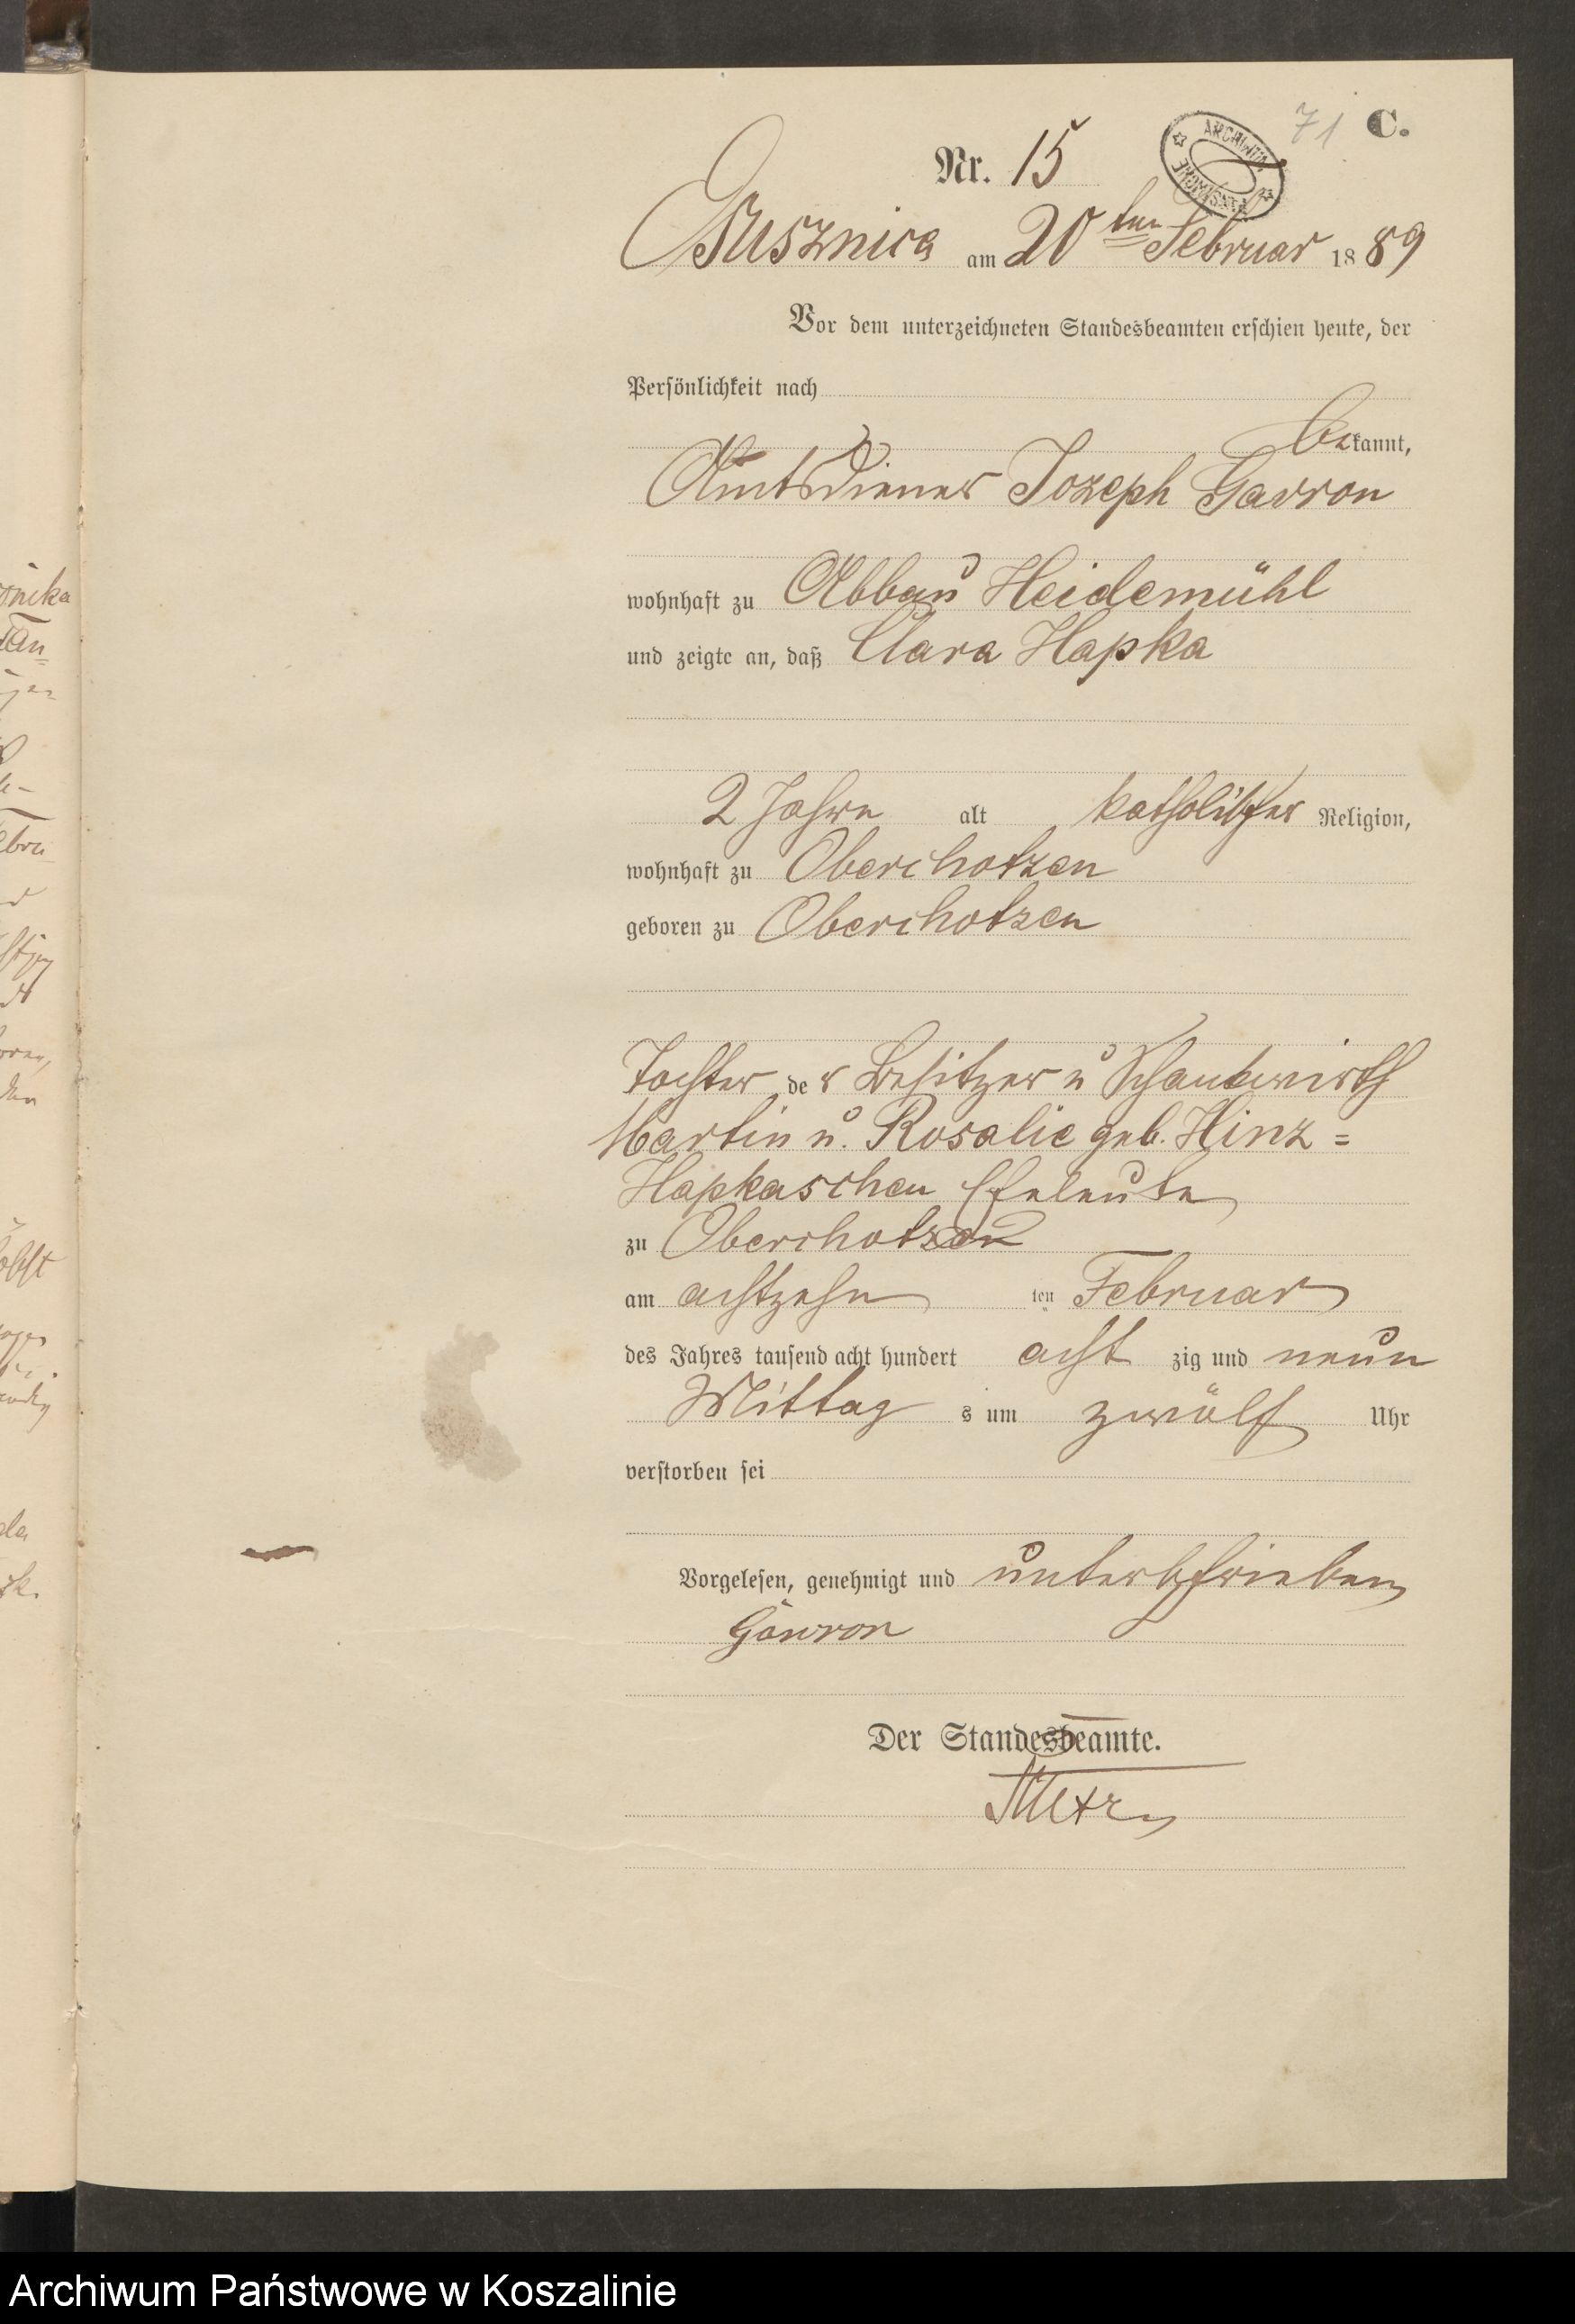 71 C.
ARCHIWUM PAŃSTWOWE
Nr. 15
am 20ten Februar 1889
Vor dem unterzeichneten Standesbeamten erschien heute, der
Persönlichkeit nach
bekannt,
Amtsdiener Jozeph Gavron
wohnhaft zu Abbau Heidemühl
und zeigte an, daß Clara Hapka
2 Jahre alt katholischer Religion,
wohnhaft zu Oberchotzen
geboren zu Oberchotzen
Tochter der Besitzer u Schankwirth
Martin u. Rosalie geb. Hinz=
Hapkaschen Eheleute
zu Oberchotzen
am achtzehn ten Februar
des Jahres tausend acht hundert acht zig und neun
Mittag s um zwölf Uhr
verstorben sei
Vorgelesen, genehmigt und unterschrieben
Gawron
Der Standesbeamte.
Archiwum Państwowe w Koszalinie